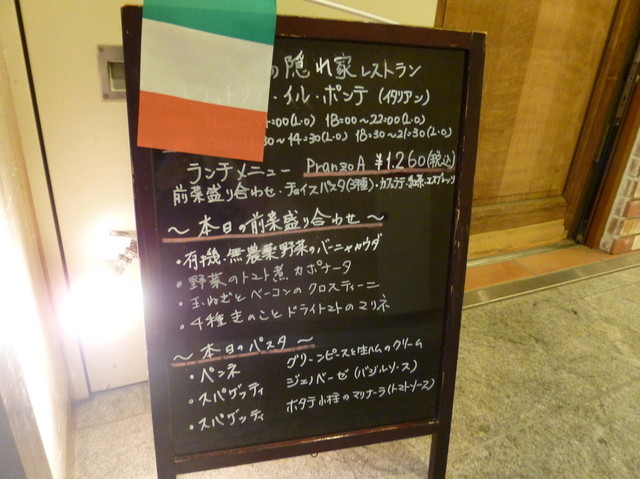 の隠れ家レストラン
・イル・ポンテ(イタリアン)
:00(L.O) 18:00~22:00(L.O)
30~14:30(L.O) 18:30~21:30(L.O)
ランチメニュー PranzoA ¥1.260(税込)
前菜盛り合わせ・チョイスパスタ(3種)・カフェラテ・紅茶・エスプレッソ
~本日の前菜盛り合わせ~
・有機・無農薬野菜のバーニャカウダ
・野菜のトマト煮カポナータ
・玉ねぎとベーコンのクロスティーニ
・4種きのことドライトマトのマリネ
~本日のパスタ~
・ペンネ グリーンピースと生ハムのクリーム
・スパゲッティ ジェノベーゼ(バジルソース)
・スパゲッティ ホタテ小柱のマリナーラ(トマトソース)